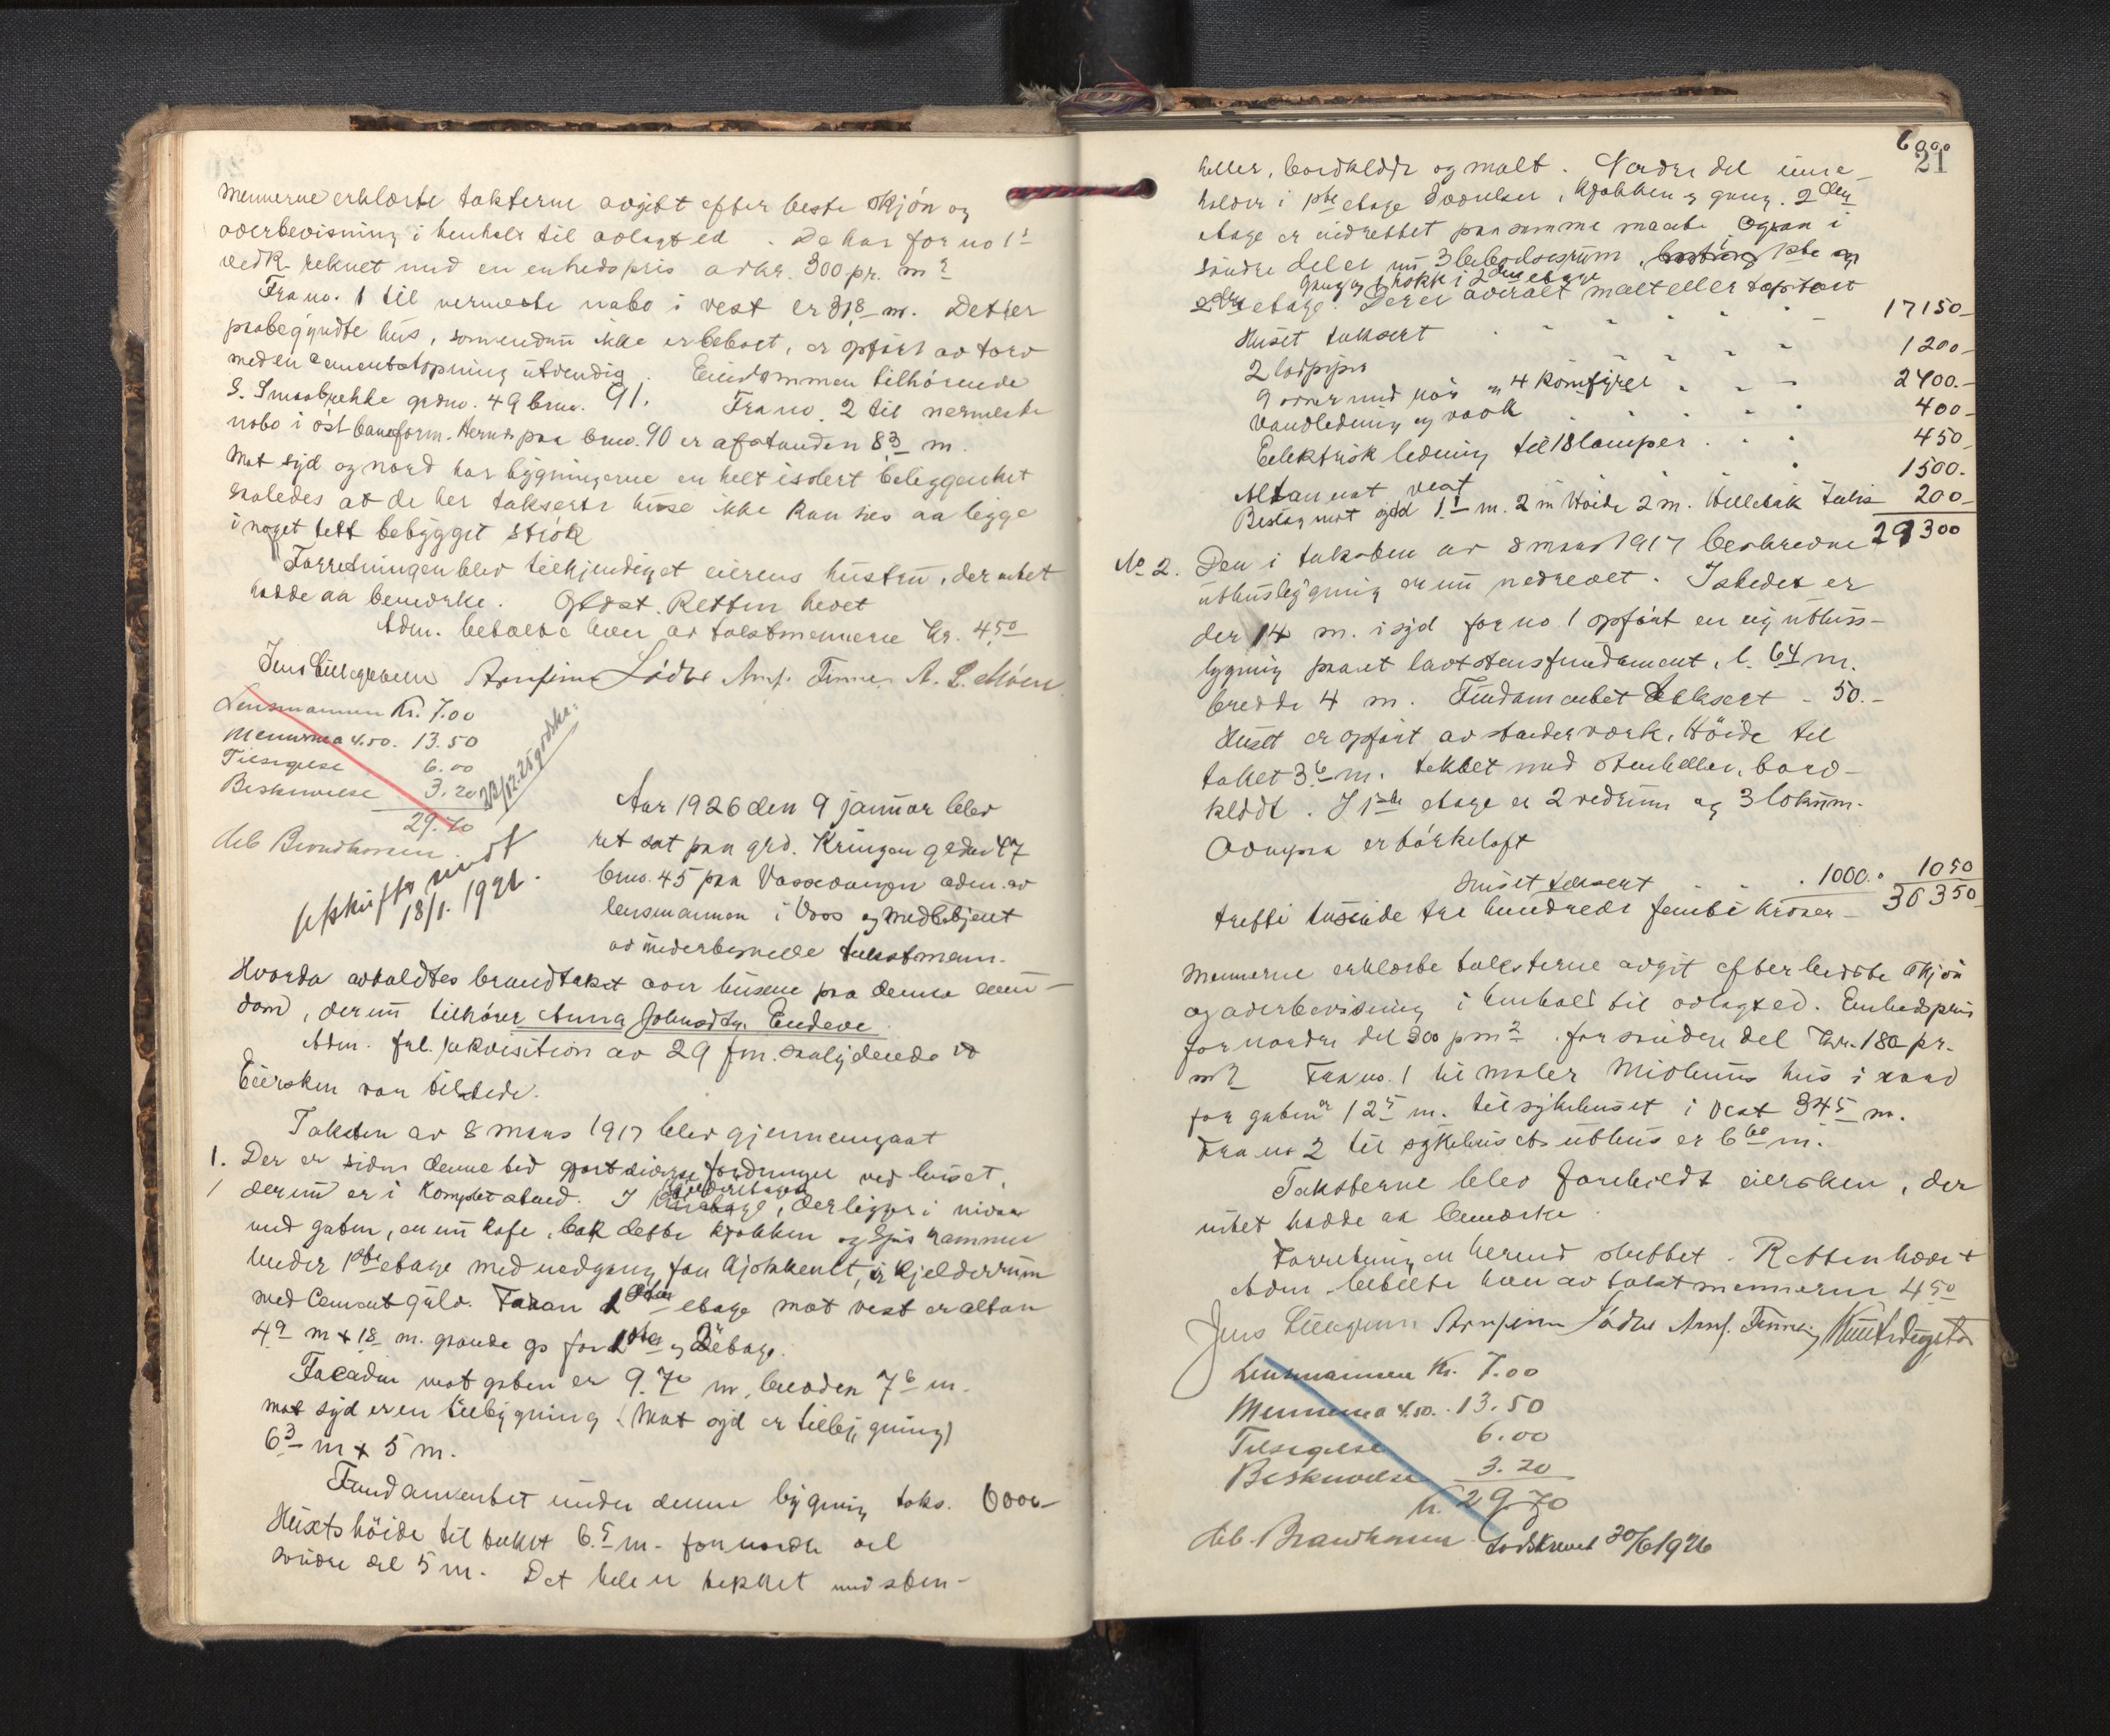 Mennerne erklærte taksterne avgivt efter beste skjön og
overbevisning i henhold til avlagt ed. De har for no 1's
vedk. reknet med en enhedspris av kr. 300 pr. m2
Fra no. 1 til nermeste nabo i vest er 31,8 m. Dette
paabegyndte hus, som endnu ikke er beboet, er opfört av torv
med en cementstøpning utvendig. Eiendommen tilhörende
S. Smaabrekke grdno. 49 brno. 91. Fra no. 2 til nermeste
nabo i öst baneform. Hernes paa brno. 90 er afstanden 8,3 m.
Mot syd og nord har bygningerne en helt isolert beliggenhet
saaledes at de her takserte huse ikke kan sies aa ligge
i noget tett bebygget strök
Forretningen blev tilkjendegjet eierens hustru, der intet
hadde aa bemerke. Oplæst. Retten hevet
Adm. betalte hver av takstmennerne kr. 4,50
Jens Lillegraven Arnfinn Lödve Arnf. Finne A. L. Möen
Lensmannen Kr. 7.00
Mennerna 4.50. 13.50
Tilsigelse 6.00
Beskrivelse 3.20
29.70
deb Brandkassen
22/12.25 godskr.
avskrift sendt
18/1. 1926.
Aar 1926 den 9 januar blev
ret sat paa grd. Kringen grdno 47
brno. 45 paa Vossevangen adm. av
lensmannen i Voss og medbetjent
av undertegnede takstmenn.
Hvorda avholdtes brandtakst over husene paa denne eien-
dom, der nu tilhörer Anna Johnsdtr. Endeve.
Adm. frl. rekvisition av 29 f.m. saalydende
Eiersken var tilstede.
Taksten av 8 mars 1917 blev gjennemgaat
1. Der er siden denne tid gjort diverse forandringer ved huset,
der nu er i komplet stand. I kjelderetagen, der ligger i nivaa
med gaten, er nu kafe, bak dette kjökken og spiskammer
Under 1ste etage med nedgang fra kjökkenet, er kjelderrum
med Cementgulv. Foran 2den etage mot vest er altan
4,9 m x 1,8 m. for 1ste og 2 etage.
Facaden mot gaten er 9.70 m, bredden 7,6 m.
mot syd er en tilbygning (Mot syd er tilbygning)
6,3 m x 5 m.
Fundamentet under denne bygning taks. 6000-
Husets höide til taket 6.5 m. for nordre del
söndre del 5 m. Det hele er tekket med sten-
6000
21
heller, bordklædt og malt. Nordre del inne-
holder i 1ste etage 2 værelser, kjökken og gang. 2den
etage er indrettet paa samme maate. Ogsaa i
söndre del er nu 3 beboelsesrum, 1ste og
gang og 1 kokk i 2den etage
2den etage. Der er overalt malt eller tapsert
Huset taksert 17150-
2 lodpiper 1200-
9 ovner med rör og 4 komfyrer 2400.-
Vandledning og vask 400-
Elektrisk ledning til 18 lamper 450-
Altan mot vest 1500.
Bislag mot syd 1,1 m. 2 m Höide 2 m. Helletak Taks 200-
29300
No 2. Den i taksten av 8 mars 1917 beskrevne
uthusbygning er nu nedrevet. Istedet er
der 14 m. i syd for no 1 opfört en ny uthus-
bygning paa et lavt stensfundament, l. 6,4 m.
bredde 4 m. Fundamentet taksert - 50.-
Huset er opfört av stenderverk. Höide til
taket 3,6 m. tekket med stenheller, bord-
klædt. I 1ste etage er 2 vedrum og 3 lokum.
Ovenpaa er törkeloft
Huset taksert 1000. 1050
tretti tusinde tre hundrede femti kroner 30350
Mennerne erklærte taksterne avgit efter bedste skjön
og overbevisning i henhold til avlagt ed. Enhedspris
for nordre del 300 pr m2. for söndre del Kr. 180 pr.
m2 Fra no. 1 til maler Midtuns hus i nord
for gaten er 12,5 m. til sykehuset i vest 34,5 m.
Fra no 2 til sykehusets uthus er 6,60 m.
Taksterne blev foreholdt eiersken, der
intet hadde aa bemerke.
Forretningen hermed sluttet. Retten hævet
Adm. betalte hver av takstmennerne 4,50
Jens Lillegraven Arnfinn Lödve Arnf. Finne
Lensmannen Kr. 7.00
Mennerna 4.50. 13.50
Tilsigelse 6.00
Beskrivelse 3.20
kr. 29.70
deb. Brandkassen Godskrevet 30/6 1926